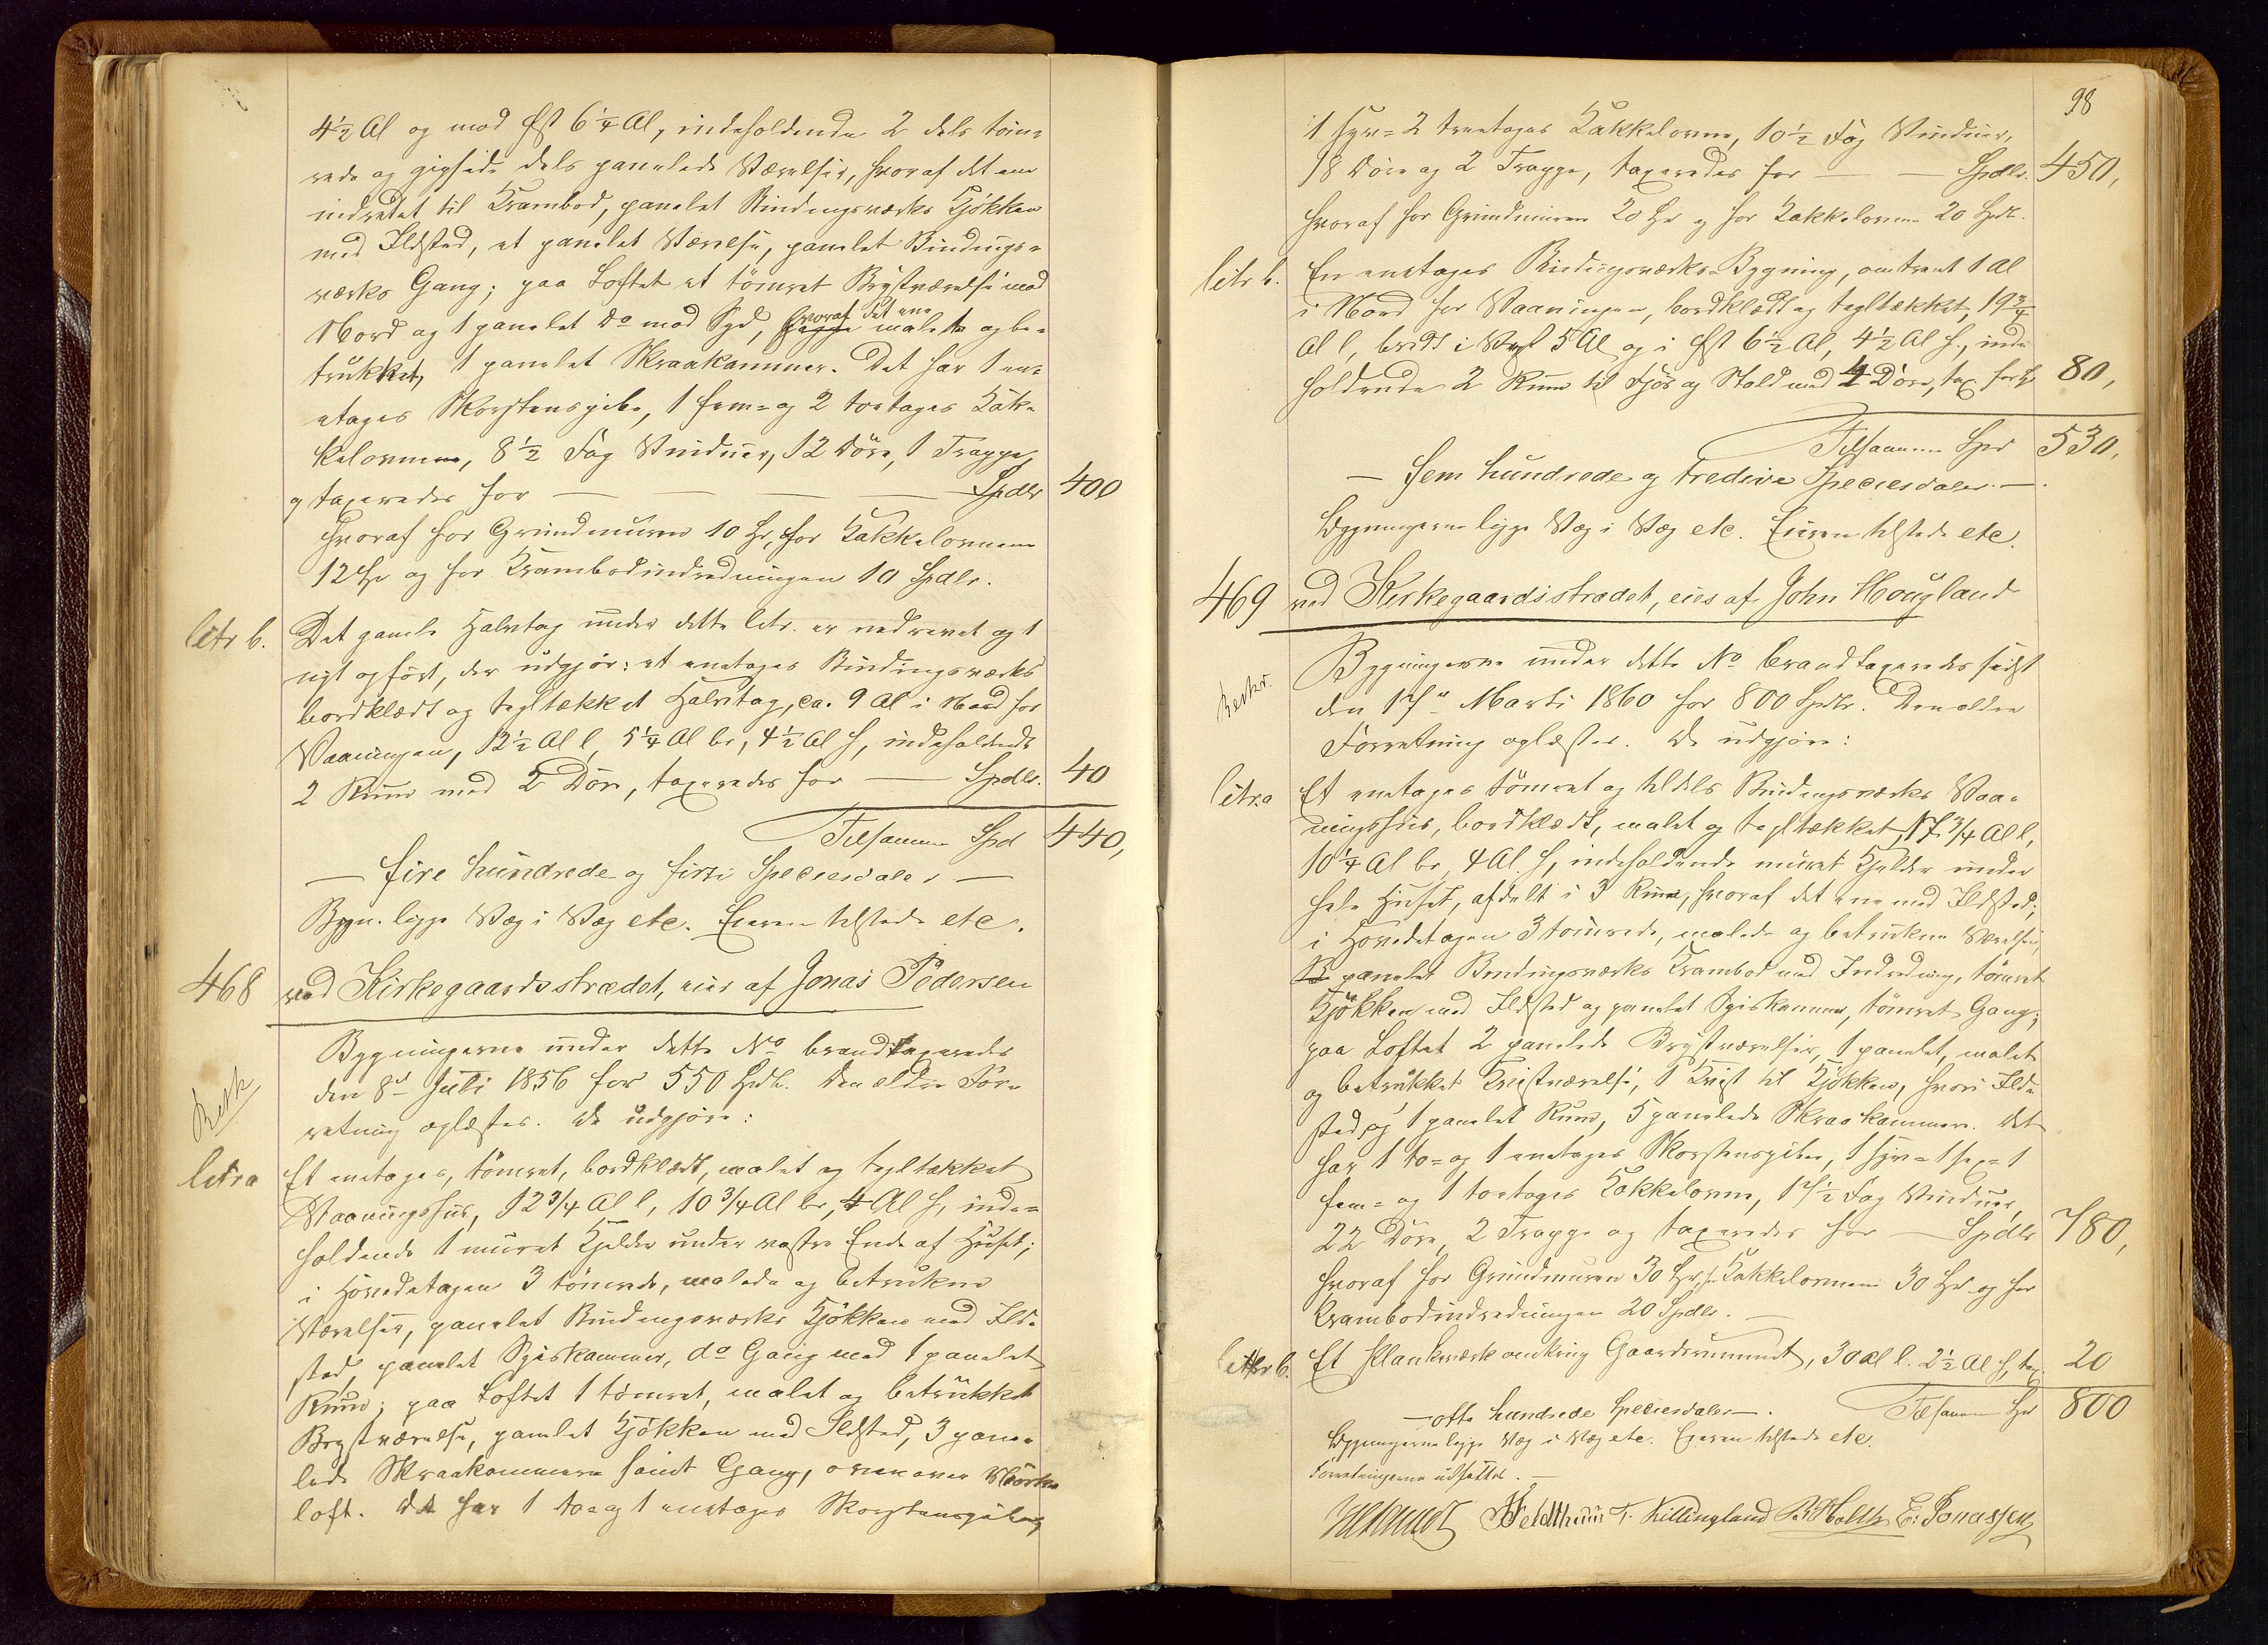 4½ Al og mod Øst 6¼ Al, indeholdende 2 dels töm=
rede og gipsede dels panelede Værelser, hvoraf det ene
indrettet til Krambod, panelet Bindingsværks Kjökken
med Ildsted, et panelet Værelse, panelet Bindings=
værks Gang; paa Loftet et tömret Brystværelse mod
Nord og 1 panelet do mod Syd, hvoraf det ene malet og be=
trukket, 1 panelet Skraakammer. Det har 1 en=
etages Skorstenspibe, 1 fem= og 2 toetages Kak=
kelovne, 8½ Fag Vinduer, 12 Döre, 1 Trappe,
og taxeredes for — — — Spdlr 400
hvoraf for Grundmuren 10 Sp, for Kakkelovnene
12 Sp og for Krambodindredningen 10 Spdlr.
litr b. Det gamle Halvtag under dette litr. er nedrevet og 1
nyt opfört, der udgjör: et enetages Bindingsværks
bordklædt og tegltækket Halvtag, ca. 9 Al i Nord for
Vaaningen, 12½ Al l, 5¼ Al br, 4½ Al h, indeholdende
2 Rum med 2 Döre, taxeredes for — Spdlr. 40
Tilsammen Spd 440,
— fire hundrede og firti Speciesdaler —
Bygn. ligge Væg i Væg etc. Eieren tilstede etc.
468 ved Kirkegaardsstrædet, eies af Jonas Pedersen
Bygningerne under dette No brandtaxeredes
Besk
den 8de Juli 1856 for 550 Spdlr. Den ældre For=
retning oplæstes. De udgjöre:
litr a Et enetages, tömret, bordklædt, malet og tegltækket
Vaaningshus, 12¾ Al l, 10¾ Al br, 4 Al h, inde=
holdende 1 muret Kjelder under vestre Ende af Huset;
i Hovedetagen 3 tömrede, malede og betrukne
Værelser, panelet Bindingsværks Kjökken med Ild=
sted, panelet Spiskammer, do Gang med 1 panelet
Rum; paa Loftet 1 tömret, malet og betrukket
Brystværelse, panelet Kjökken med Ildsted, 3 pane=
lede Skraakammere samt Gang, ovenover Mörke
loft. Det har 1 to= og 1 enetages Skorstenspibe,
98
1 fyr= 2 treetages Kakkelovne, 10½ Fag Vinduer,
18 Döre og 2 Trappe, taxeredes for — — Spdlr. 450,
hvoraf for Grundmuren 20 Sp og for Kakkelovnene 20 Spdlr.
litr b. En enetages Bindingsværks Bygning, omtrent 1 Al
i Nord for Vaaningen, bordklædt og tegltækket, 19¾
Al l, bredt i Vest 5 Al og i Øst 6½ Al, 4½ Al h., inde
holdende 2 Rum til Fjös og Stald med 4 Döre, tax. for Sp 80,
Tilsammen Spd 530,
— fem hundrede og tredive Speciesdaler. —
Bygningerne ligge Væg i Væg etc. Eieren tilstede etc.
469 ved Kirkegaardsstrædet, eies af John Hougland
Bygningerne under dette No brandtaxeredes sidst
Beskr.
den 17de Marts 1860 for 800 Spdlr. Den ældre
Forretning oplæstes. De udgjöre:
litr. a Et enetages tömret og tildels Bindingsværks Vaa=
ningshus, bordklædt, malet og tegltækket, 17¾ Al l,
10¼ Al br, 4 Al. h, indeholdende muret Kjelder under
hele Huset, afdelt i 3 Rum, hvoraf det ene med Ildsted;
i Hovedetagen 3 tömrede, malede og betrukne Værelser,
panelet Bindingsværks Krambod med Indredning, tömret
Kjökken med Ildsted og panelet Spiskammer, tömret Gang;
paa Loftet 2 panelede Brystværelser, 1 panelet, malet
og betrukket Kvistværelse, 1 Kvist til Kjökken, hvori Ild=
sted og 1 panelet Rum, 5 panelede Skraakammere. Det
har 1 to= og 1 enetages Skorstenspiber, 1 syv= 1 sex= 1
fem= og 1 toetages Kakkelovne, 17½ Fag Vinduer,
22 Döre, 2 Trappe og taxeredes for — Spdlr 780,
hvoraf for Grundmuren 30 Spd, f. Kakkelovnene 30 Spd og for
Krambodindredningen 20 Spdlr. —
litr b. Et Plankeværk omkring Gaardsrummet, 30 Al l. 2½ Al h, tax. 20
— otte hundrede Speciesdaler —. Tilsammen Spd 800
Bygningerne ligge Væg i Væg etc. Eieren tilstede etc.
Forretningerne udsattes. —
Feldthuus T. Killingland P. Holth E: Jonassen